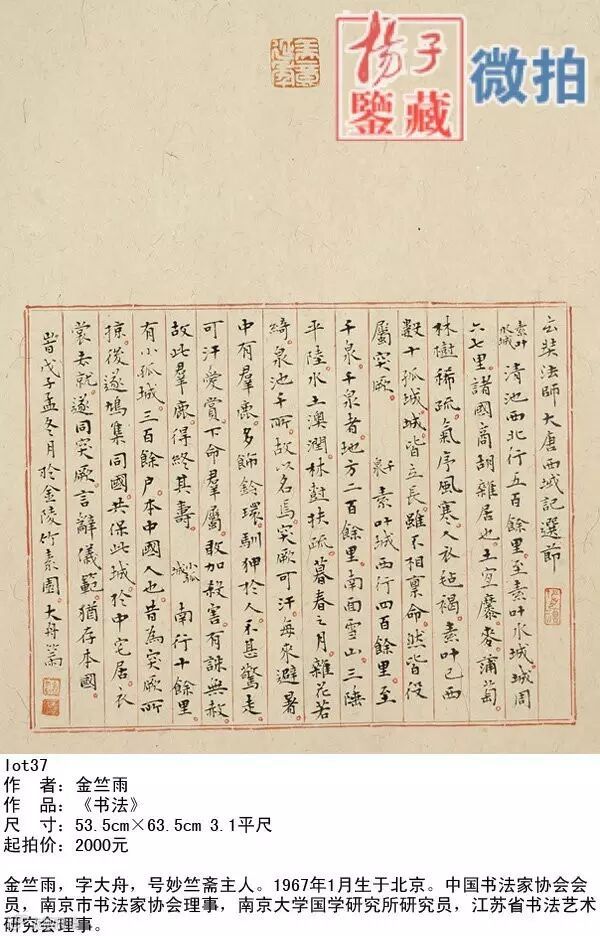 杨子
鑒藏
微拍
玄奘法師大唐西域記選節
素叶水城 清池西北行五百餘里。至素叶水城。城周
六七里。諸國商胡雜居也。土宜穈麥。蒲萄。
林樹稀疏。氣序風寒。人衣氈褐。素叶已西
數十孤城。城皆立長。雖不相稟命。然皆役
屬突厥。 千泉 素叶城西行四百餘里。至
千泉。千泉者。地方二百餘里。南面雪山。三陲
平陸。水土澳潤。林樹扶疏。暮春之月。雜花若
綺。泉池千所。故以名焉。突厥可汗。每來避暑
中有羣鹿。多飾鈴環。馴狎於人。不甚驚走
可汗愛賞。下命羣屬。敢加殺害。有誅無赦。
故此羣鹿。得終其壽。 小孤城 南行十餘里
有小孤城。三百餘户。本中國人也。昔為突厥所
掠。後遂鳩集同國。共保此城。於中宅居。衣
裳去就。遂同突厥。言辭儀範。猶存本國。
旹戊子孟冬月於金陵竹素園 大舟
lot37
作 者：金竺雨
作 品：《书法》
尺 寸：53.5cm×63.5cm 3.1平尺
起拍价：2000元
金竺雨，字大舟，号妙竺斋主人。1967年1月生于北京。中国书法家协会会
员，南京市书法家协会理事，南京大学国学研究所研究员，江苏省书法艺术
研究会理事。